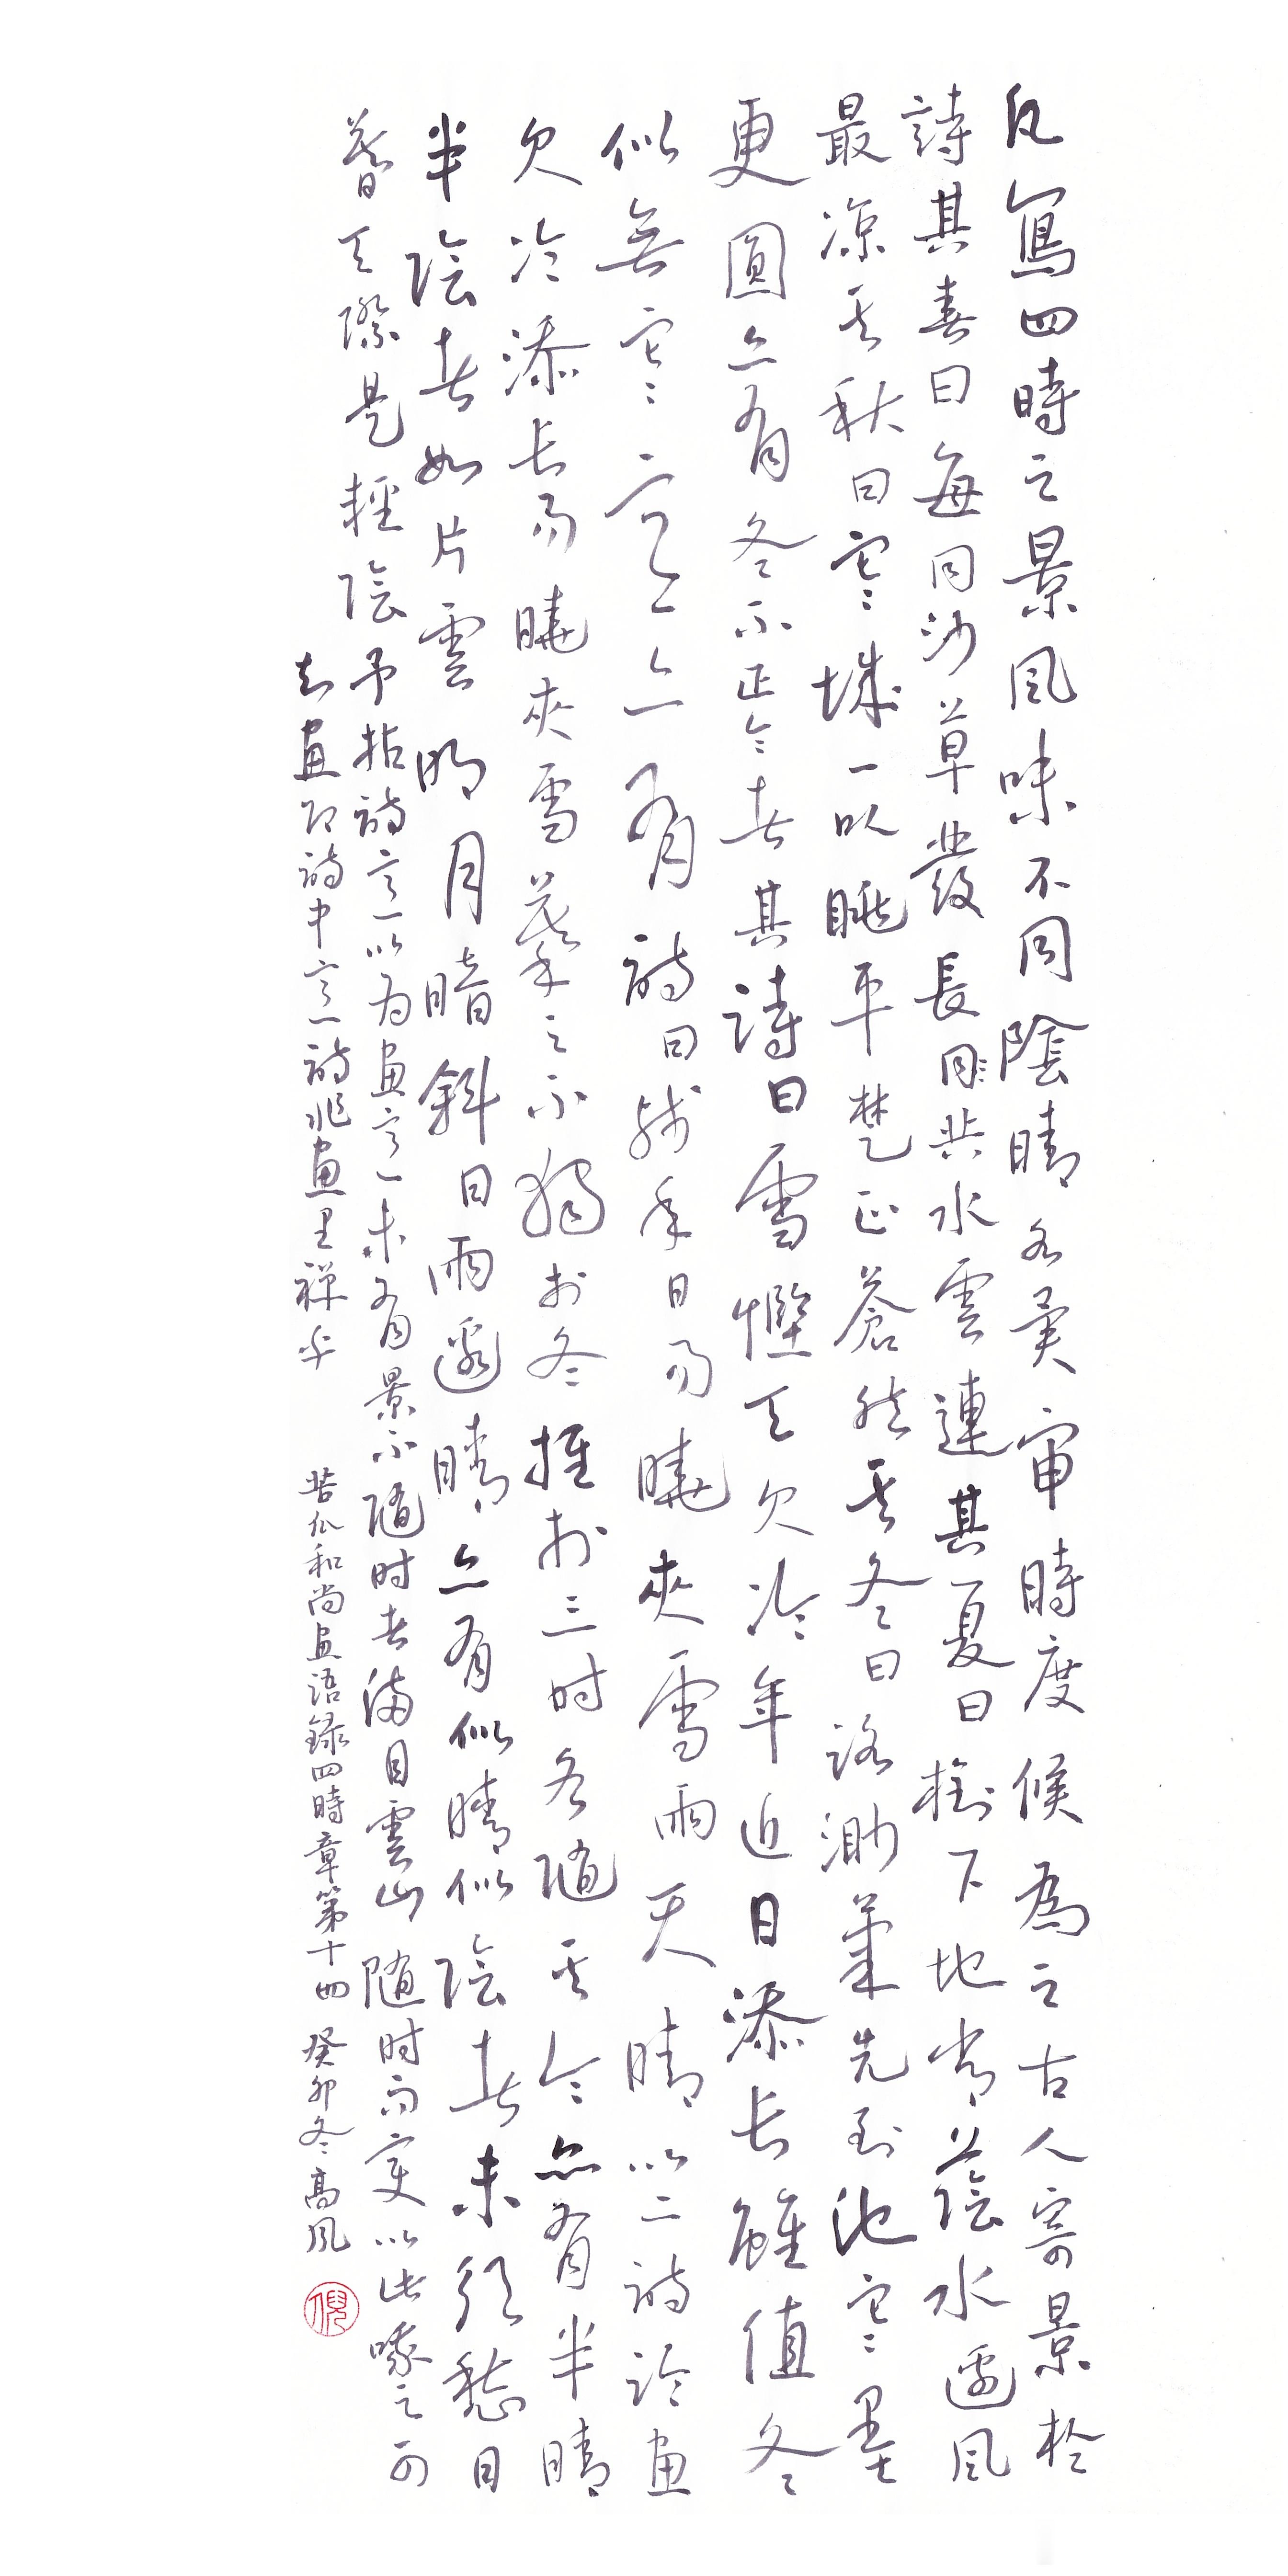 凡寫四時之景風味不同陰晴各異審時度候為之古人寄景於
詩其春曰每同沙草發長同共水雲連其夏曰樹下地常蔭水邊風
最涼其秋曰寒城一以眺平楚正蒼然其冬曰路渺筆先到池寒墨
更圓亦有冬不正令者其詩曰雪慳天欠冷年近日添長雖值冬
似無寒意亦有詩曰殘年日易曉夾雪雨天晴以二詩論畫
欠冷添長易曉夾雪摹之不獨於冬推於三時各隨其令亦有半晴
半陰者如片雲明月暗斜日雨邊晴亦有似晴似陰者未須愁日
暮天際是輕陰予拈詩意以為畫意未有景不隨時者滿目雲山隨時而變以此哦之可
知畫即詩中意詩非畫里禪乎
苦瓜和尚畫語錄四時章第十四 癸卯冬高風
倪